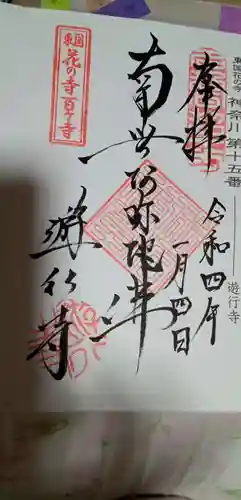 東国花の寺
神奈川第十五番
遊行寺
奉拝
令和四年
一月四日
南無阿弥陀佛
遊行寺
東国
花の寺百ヶ寺